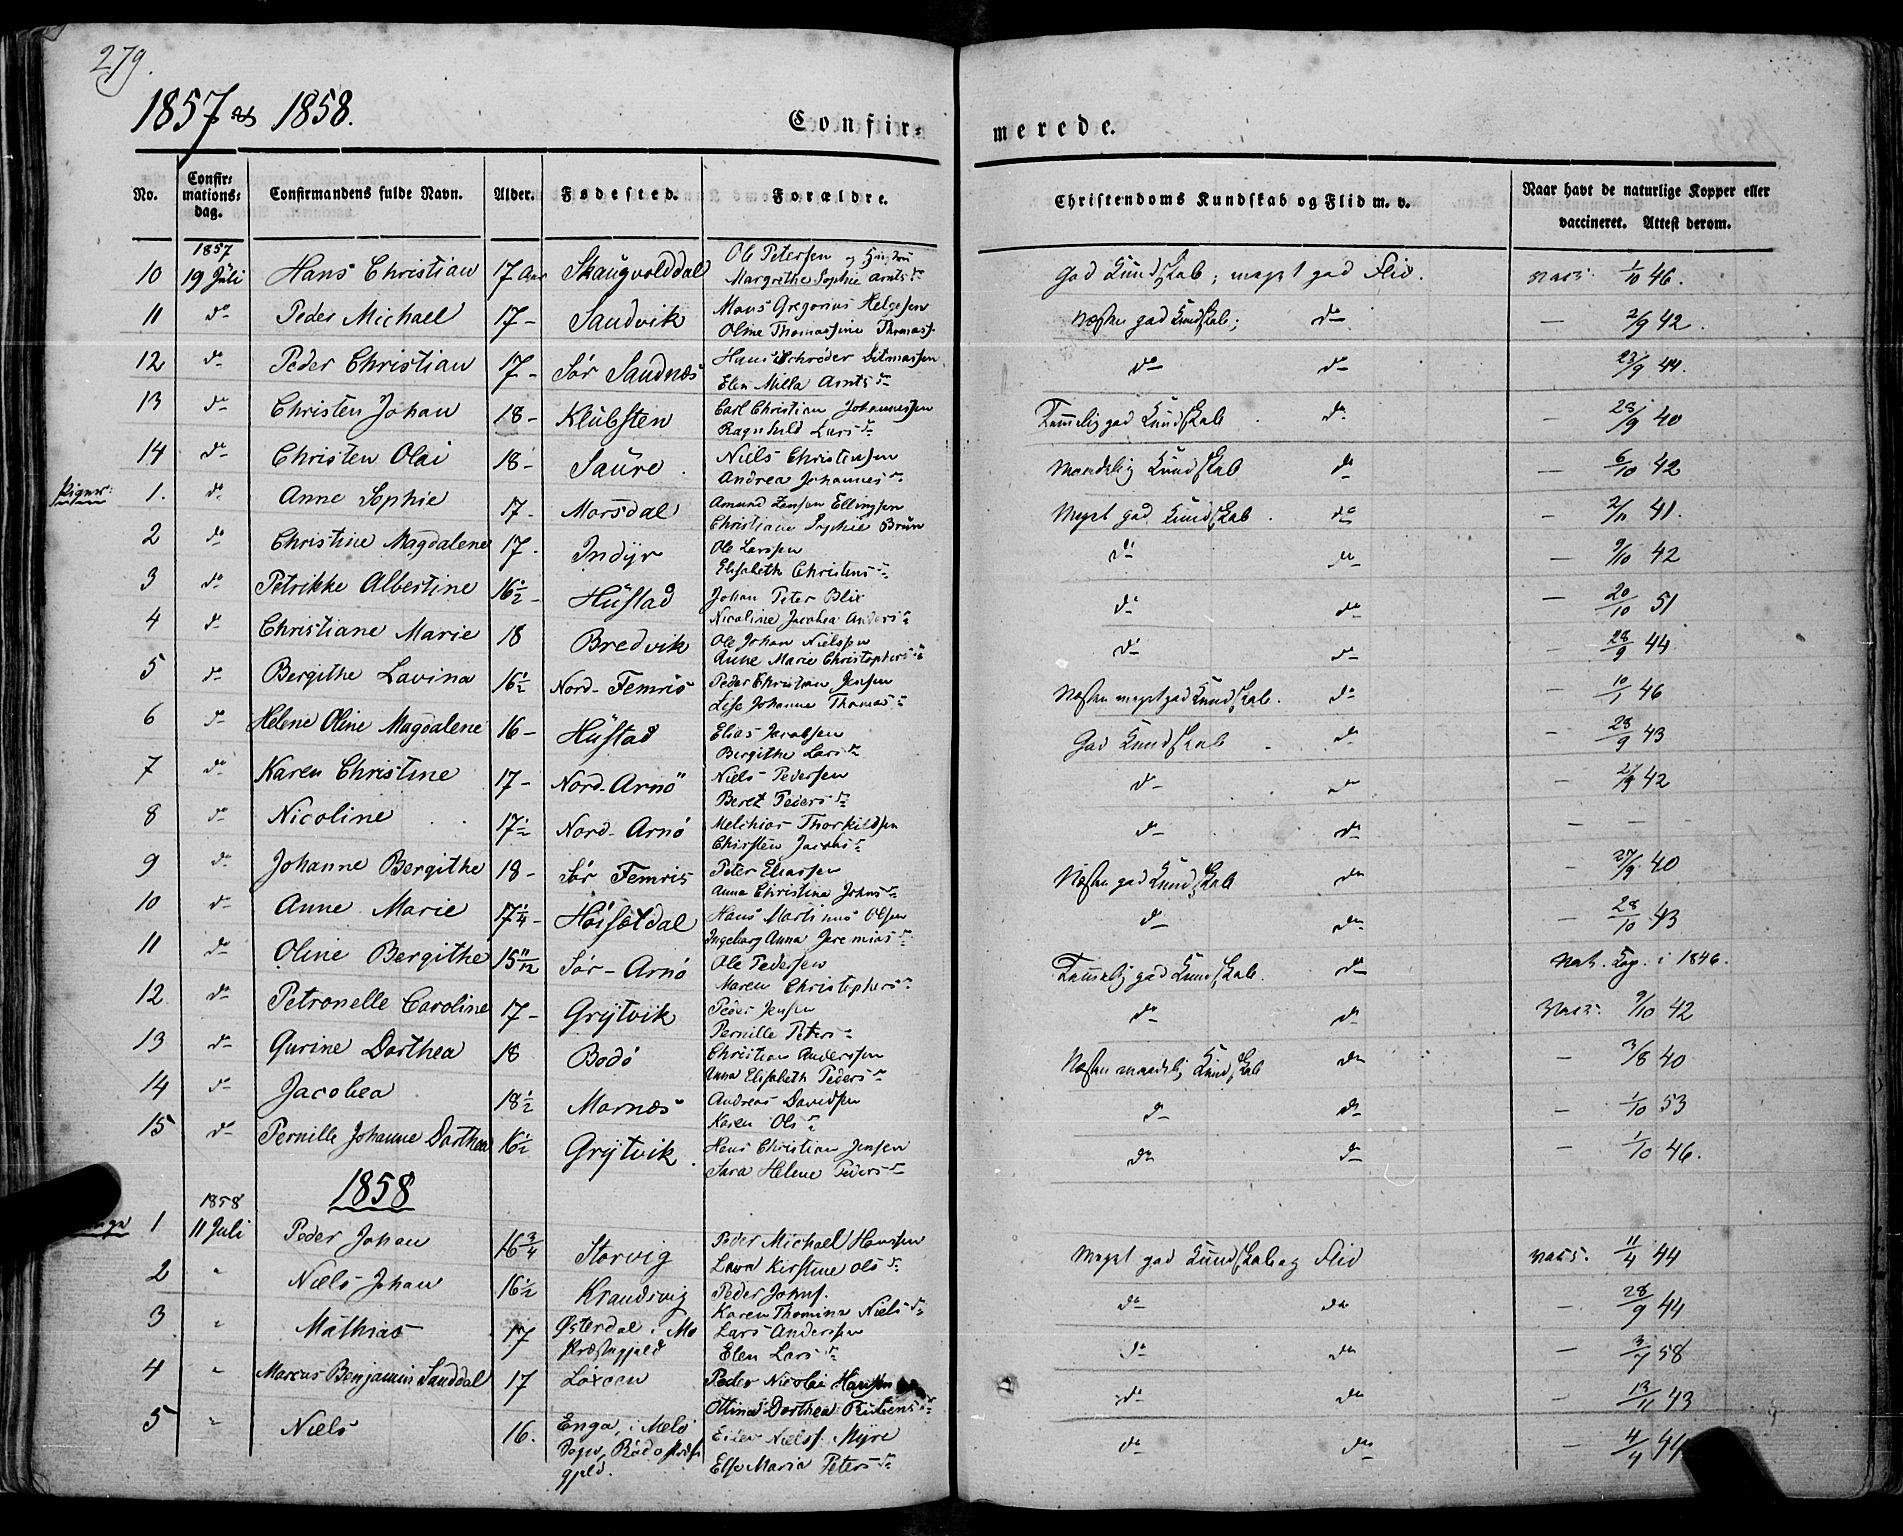 279.
1857 og 1858.
Confir-
merede.
No.
Confir-
mations-
dag.
Confirmandens fulde Navn.
Alder.
Fødested.
Forældre.
Christendoms Kundskab og Flid m. v.
Naar havt de naturlige Kopper eller
vaccineret. Attest derom.
1857
10 19 Juli Hans Christian 17 Aar Skaugvolddal Ole Petersen og Hustru
Margrethe Sophie Arntsdr God Kundskab; meget god Flid. vacc: 1/10 46.
11 do Peder Michael 17- Sandvik Mons Gregorius Helgesen
Oline Thomasine Thomasd Næsten god Kundskab; do — 2/9 42.
12 do Peder Christian 17- Sør Sandnæs Hans Schrøder Ditmarssen
Elen Milla Arntsdr do do 23/9 44.
13 do Christen Johan 18- Klubsten Carl Christian Johannessen
Ragnhild Larsdr Temmelig god Kundskab do — 28/9 40
14 do Christen Olai 18- Saure Niels Christensen
Andrea Johannesdr Maadelig Kundskab do — 6/10 42
Piger:
1. do Anne Sophie 17- Morsdal Amund Ellingsen
Christiane Sophie Brun Meget god Kundskab do — 2/11 41.
2 do Christine Magdalene 17- Indyr Ole Larssen
Elisabeth Christensdr do do — 9/10 42
3 do Petrikke Albertine 16½- Hustad Johan Peter Blix
Nicoline Jacobea Andersdr do do — 20/10 51
4 do Christiane Marie 18 Bredvik Ole Johan Nielssen
Anne Marie Christophersdr do do — 28/9 44.
5 do Bergithe Lavina 16½ Nord-Femris Peder Christian Jensen
Lise Johanna Thomasdr Næsten meget god Kundskab. do — 10/1 46
6 do Helene Oline Magdalene 16- Hustad Elias Jacobsen
Bergithe Larsdr God Kundskab do — 28/9 43
7 do Karen Christine 17- Nord-Arnö Niels Pedersen
Beret Pedersdr do do — 27/9 42
8 do Nicoline 17½ Nord-Arnø Melchior Thorkildsen
Chirsten Jacobsdr do do — —
9 do Johanne Bergithe 18- Sør Femris Peter Eliassen
Anna Christina Johnsdr Næsten god Kundskab do — 27/9 40
10 do Anne Marie 17¼- Høisetdal Hans Martinus Olsen
Ingeborg Anna Jeremiasdr do do — 28/10 43
11 do Oline Bergithe 15 11/12 Sør-Arnø Ole Pedersen
Maren Christophersdr Temmelig god Kundskab. do Nat. Kop. i 1846.
12 do Petronelle Caroline 17- Grytvik Peder Jensen
Pernille Petersdr do do vacc: 9/10 42
13 do Gurine Dorthea 18 Bodö Christian Anderssen
Anna Elisabeth Pedersdr Næsten maadelig Kundskab do — 3/8 40
14 do Jacobea 18½ Mornæs Andreas Davidsen
Karen Olsdr do do — 1/10 53
15 do Pernille Johanne Dorthea 16½ Grytvik. Hans Christian Jensen
Sara Helene Pedersdr do do — 1/10 46.
1858
1858
1 11 Juli Peder Johan 16¾ Storvig Peder Michael Hanssen
Lava Kirstine Olsdr Meget god Kundskab og Flid vacc. 11/4 44
2 " Niels Johan 16½ Krandsvig Peder Johns.
Karen Thomina Nielsdr do do — 28/9 44.
3 " Mathias 17 Østerdal i Mo
Præstegjeld Lars Anderssen
Elen Larsdr do do — 3/7 58
4 " Marcus Benjamin Sanddal 17 Peder Nicolai Hansen
Ottina Dorthea do do — 13/11 43
5 " Niels 16. Enga, i Melø
Sogn, Rødø Præste
gjeld. Niels. Myre
Else Maria Petersdr do do — 4/9 44